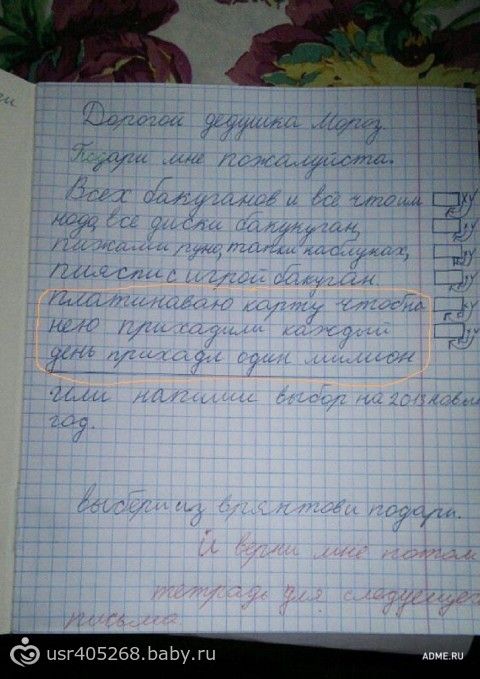 Дорогой дедушка Мороз.
Подари мне пожалуйста.
Всех бакуганов и всё чтоим
нода, все диски бакунуган,
пижами руно, тапки каблуках,
пияспи с игрой бакуган.
платинаваю карту чтобна
нею прихадили каждый
день прихадл один милион
Или напиши выбор на 2013 новый
год.
выбери из вряктови подари.
И верни мне потом
тетрадь для следующего
письма
usr405268.baby.ru
ADME.RU